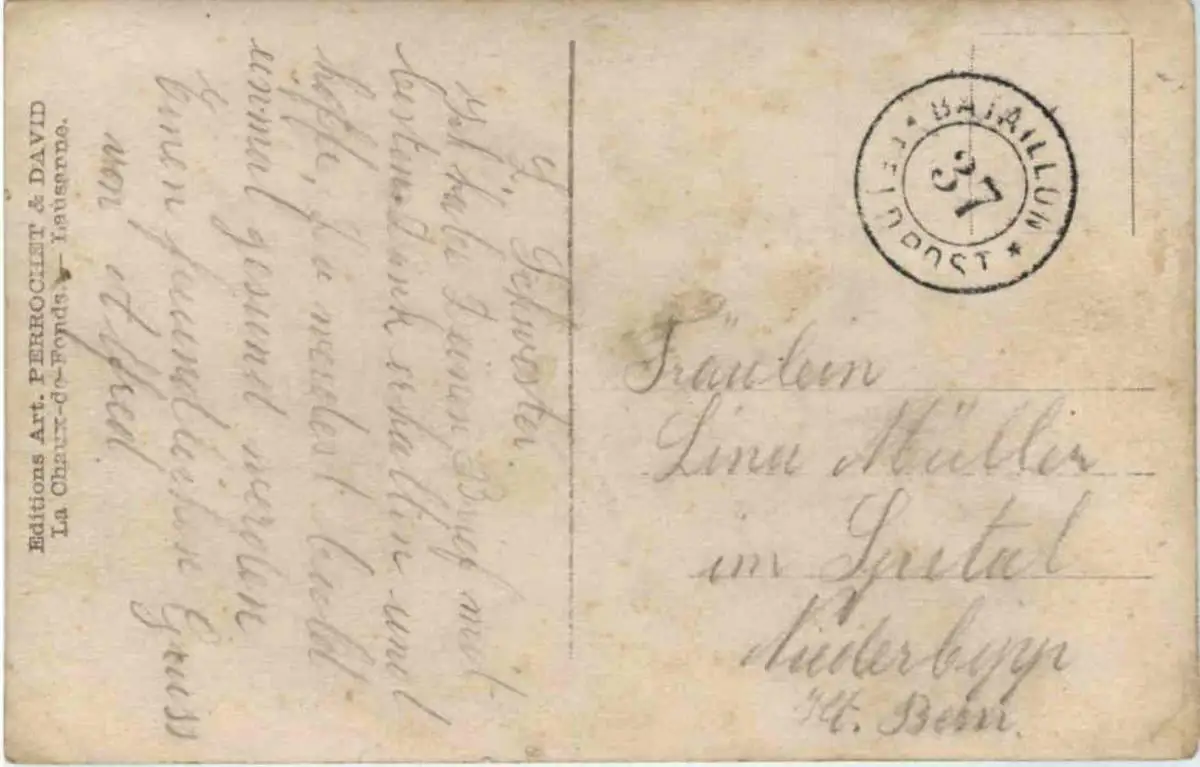 Editions Art. PERROCHET & DAVID
La Chaux-de-Fonds — Lausanne.
L. Schwester
Ich habe Deinen Brief mit
bestem Dank erhalten und
hoffe, Du werdest bald
einmal gesund werden
Einen freundlichen Gruss
von
BATAILLON
37
FELDPOST
Fräulein
Lina Müller
im Spital
Niederbipp
Kt. Bern.